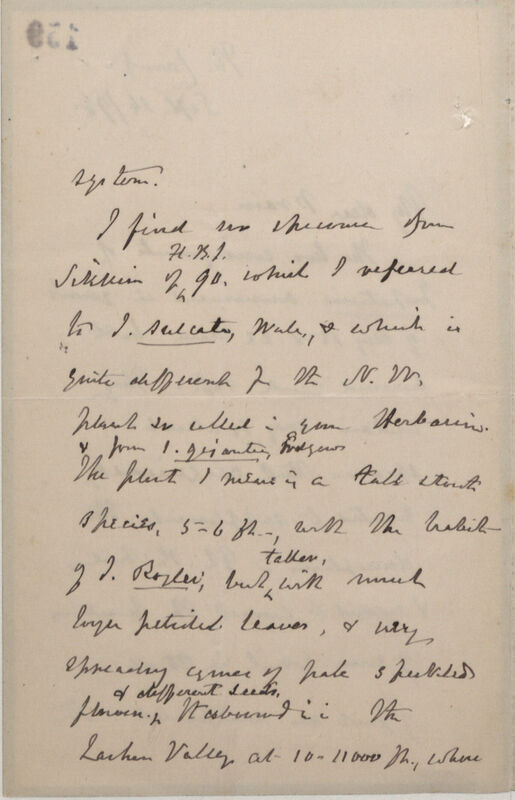 159
system.
I find no specimen from
Sikkim of H.B.I. 90. which I referred
to I. sulcata, Wall., & which is
quite different fr the N.W.
plant so called in your Herbarium.
& from I. gigantea, Edgew
The plant I mean is a tall stout
species, 5-6 ft., with the habit
of I. Roylei, but taller, with much
larger petioled leaves, & very
spreading cymes of pale speckled
flowers. & different seeds. It abounds in the
Lachen Valley at 10-11000 ft., where